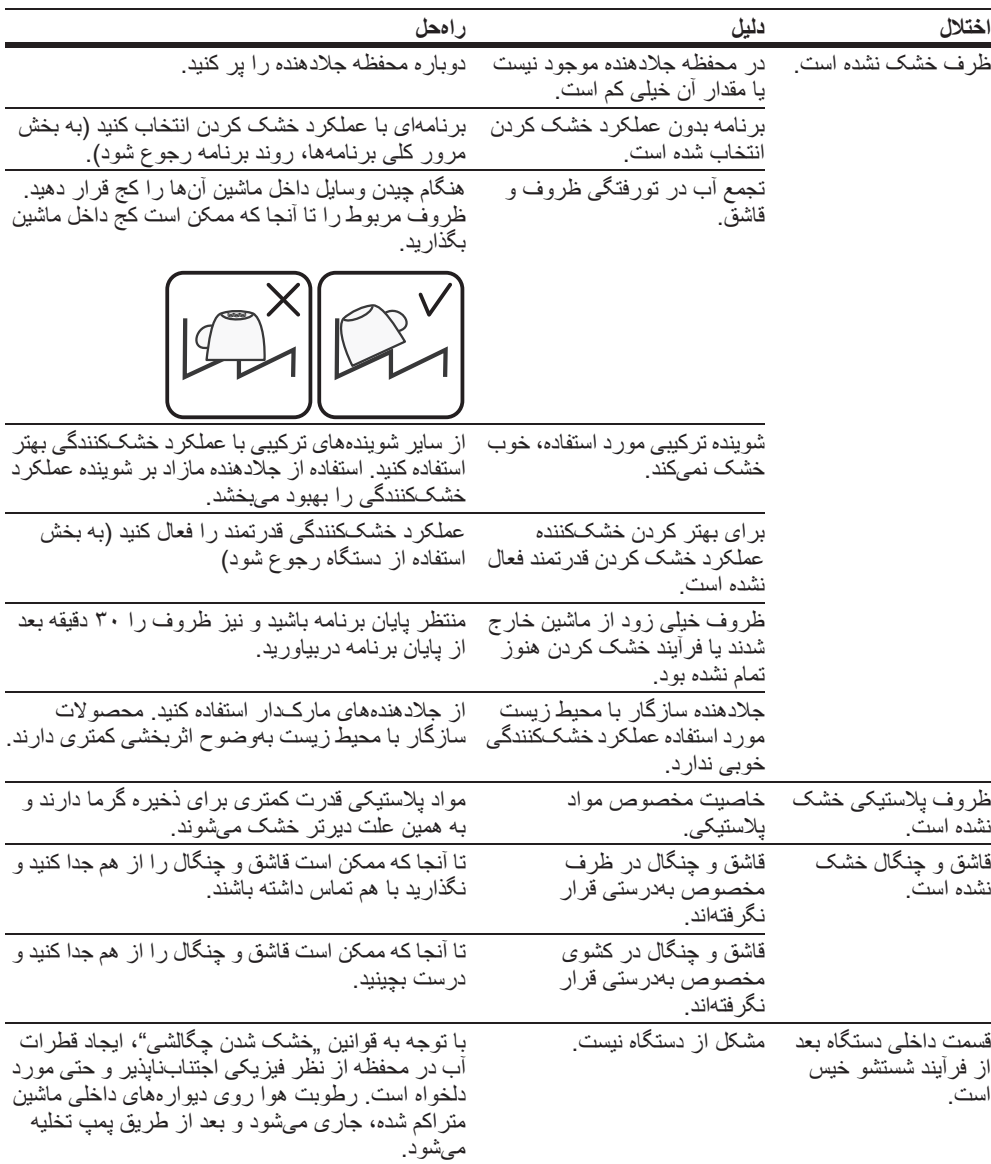 اختلال
دلیل
راه‌حل
ظرف خشک نشده است.
در محفظه جلادهنده موجود نیست
یا مقدار آن خیلی کم است.
دوباره محفظه جلادهنده را پر کنید.
برنامه بدون عملکرد خشک کردن
انتخاب شده است.
برنامه‌ای با عملکرد خشک کردن انتخاب کنید (به بخش
مرور کلی برنامه‌ها، روند برنامه رجوع شود).
تجمع آب در تورفتگی ظروف و
قاشق.
هنگام چیدن وسایل داخل ماشین آن‌ها را کج قرار دهید.
ظروف مربوط را تا آنجا که ممکن است کج داخل ماشین
بگذارید.
شوینده ترکیبی مورد استفاده، خوب
خشک نمی‌کند.
از سایر شوینده‌های ترکیبی با عملکرد خشک‌کنندگی بهتر
استفاده کنید. استفاده از جلادهنده مازاد بر شوینده عملکرد
خشک‌کنندگی را بهبود می‌بخشد.
برای بهتر کردن خشک‌کننده
عملکرد خشک کردن قدرتمند فعال
نشده است.
عملکرد خشک‌کنندگی قدرتمند را فعال کنید (به بخش
استفاده از دستگاه رجوع شود)
ظروف خیلی زود از ماشین خارج
شدند یا فرآیند خشک کردن هنوز
تمام نشده بود.
منتظر پایان برنامه باشید و نیز ظروف را ۳۰ دقیقه بعد
از پایان برنامه دربیاورید.
جلادهنده سازگار با محیط زیست
مورد استفاده عملکرد خشک‌کنندگی
خوبی ندارد.
از جلادهنده‌های مارک‌دار استفاده کنید. محصولات
سازگار با محیط زیست به‌وضوح اثربخشی کمتری دارند.
ظروف پلاستیکی خشک
نشده است.
خاصیت مخصوص مواد
پلاستیکی.
مواد پلاستیکی قدرت کمتری برای ذخیره گرما دارند و
به همین علت دیرتر خشک می‌شوند.
قاشق و چنگال خشک
نشده است.
قاشق و چنگال در ظرف
مخصوص به‌درستی قرار
نگرفته‌اند.
تا آنجا که ممکن است قاشق و چنگال را از هم جدا کنید و
نگذارید با هم تماس داشته باشند.
قاشق و چنگال در کشوی
مخصوص به‌درستی قرار
نگرفته‌اند.
تا آنجا که ممکن است قاشق و چنگال را از هم جدا کنید و
درست بچینید.
قسمت داخلی دستگاه بعد
از فرآیند شستشو خیس
است.
مشکل از دستگاه نیست.
با توجه به قوانین „خشک شدن چگالشی“، ایجاد قطرات
آب در محفظه از نظر فیزیکی اجتناب‌ناپذیر و حتی مورد
دلخواه است. رطوبت هوا روی دیواره‌های داخلی ماشین
متراکم شده، جاری می‌شود و بعد از طریق پمپ تخلیه
می‌شود.